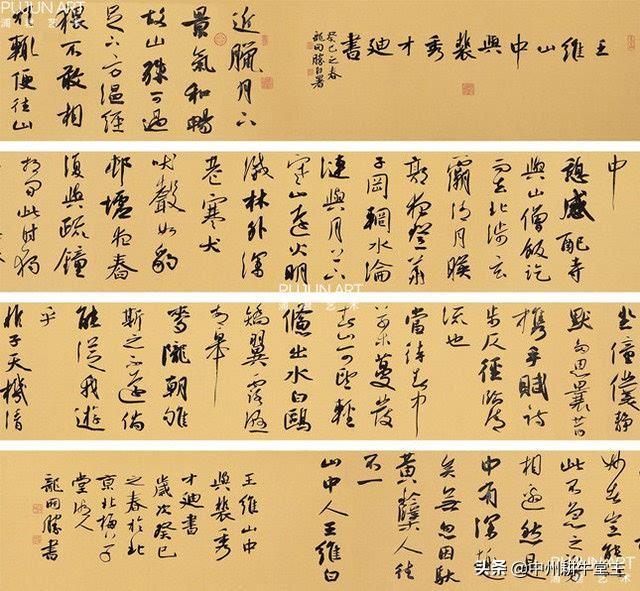 PUJUN ART
浦君艺术
王維山中與裴秀才迪書
癸巳之春
龍開勝自署
近臘月下
景氣和暢
故山殊可過
足下方温經
猥不敢相
煩輒便往山
中
憩感配寺
與山僧飯訖
而去北涉玄
灞清月映
郭夜登華
子岡輞水淪
漣與月上下
寒山遠火明
滅林外深
巷寒犬
吠聲如豹
邨墟夜舂
復與疏鐘
相間此時獨
PUJUN ART
浦君艺术
坐僮僕静
默多思曩昔
攜手賦詩
步仄徑臨清
流也
當待春中
草木蔓發
春山可望輕
鯈出水白鷗
矯翼露濕
青皋
麥隴朝雊
斯之不遠倘
能從我遊
乎
非子天機清
妙者豈能以
此不急之務
相邀然是
中有深趣
矣無忽因馱
黄蘗人往
不一
山中人王維白
王維山中
與裴秀
才迪書
歲次癸巳
之春於北
龍開勝書
PUJUN ART
头条 @中州耕牛堂主